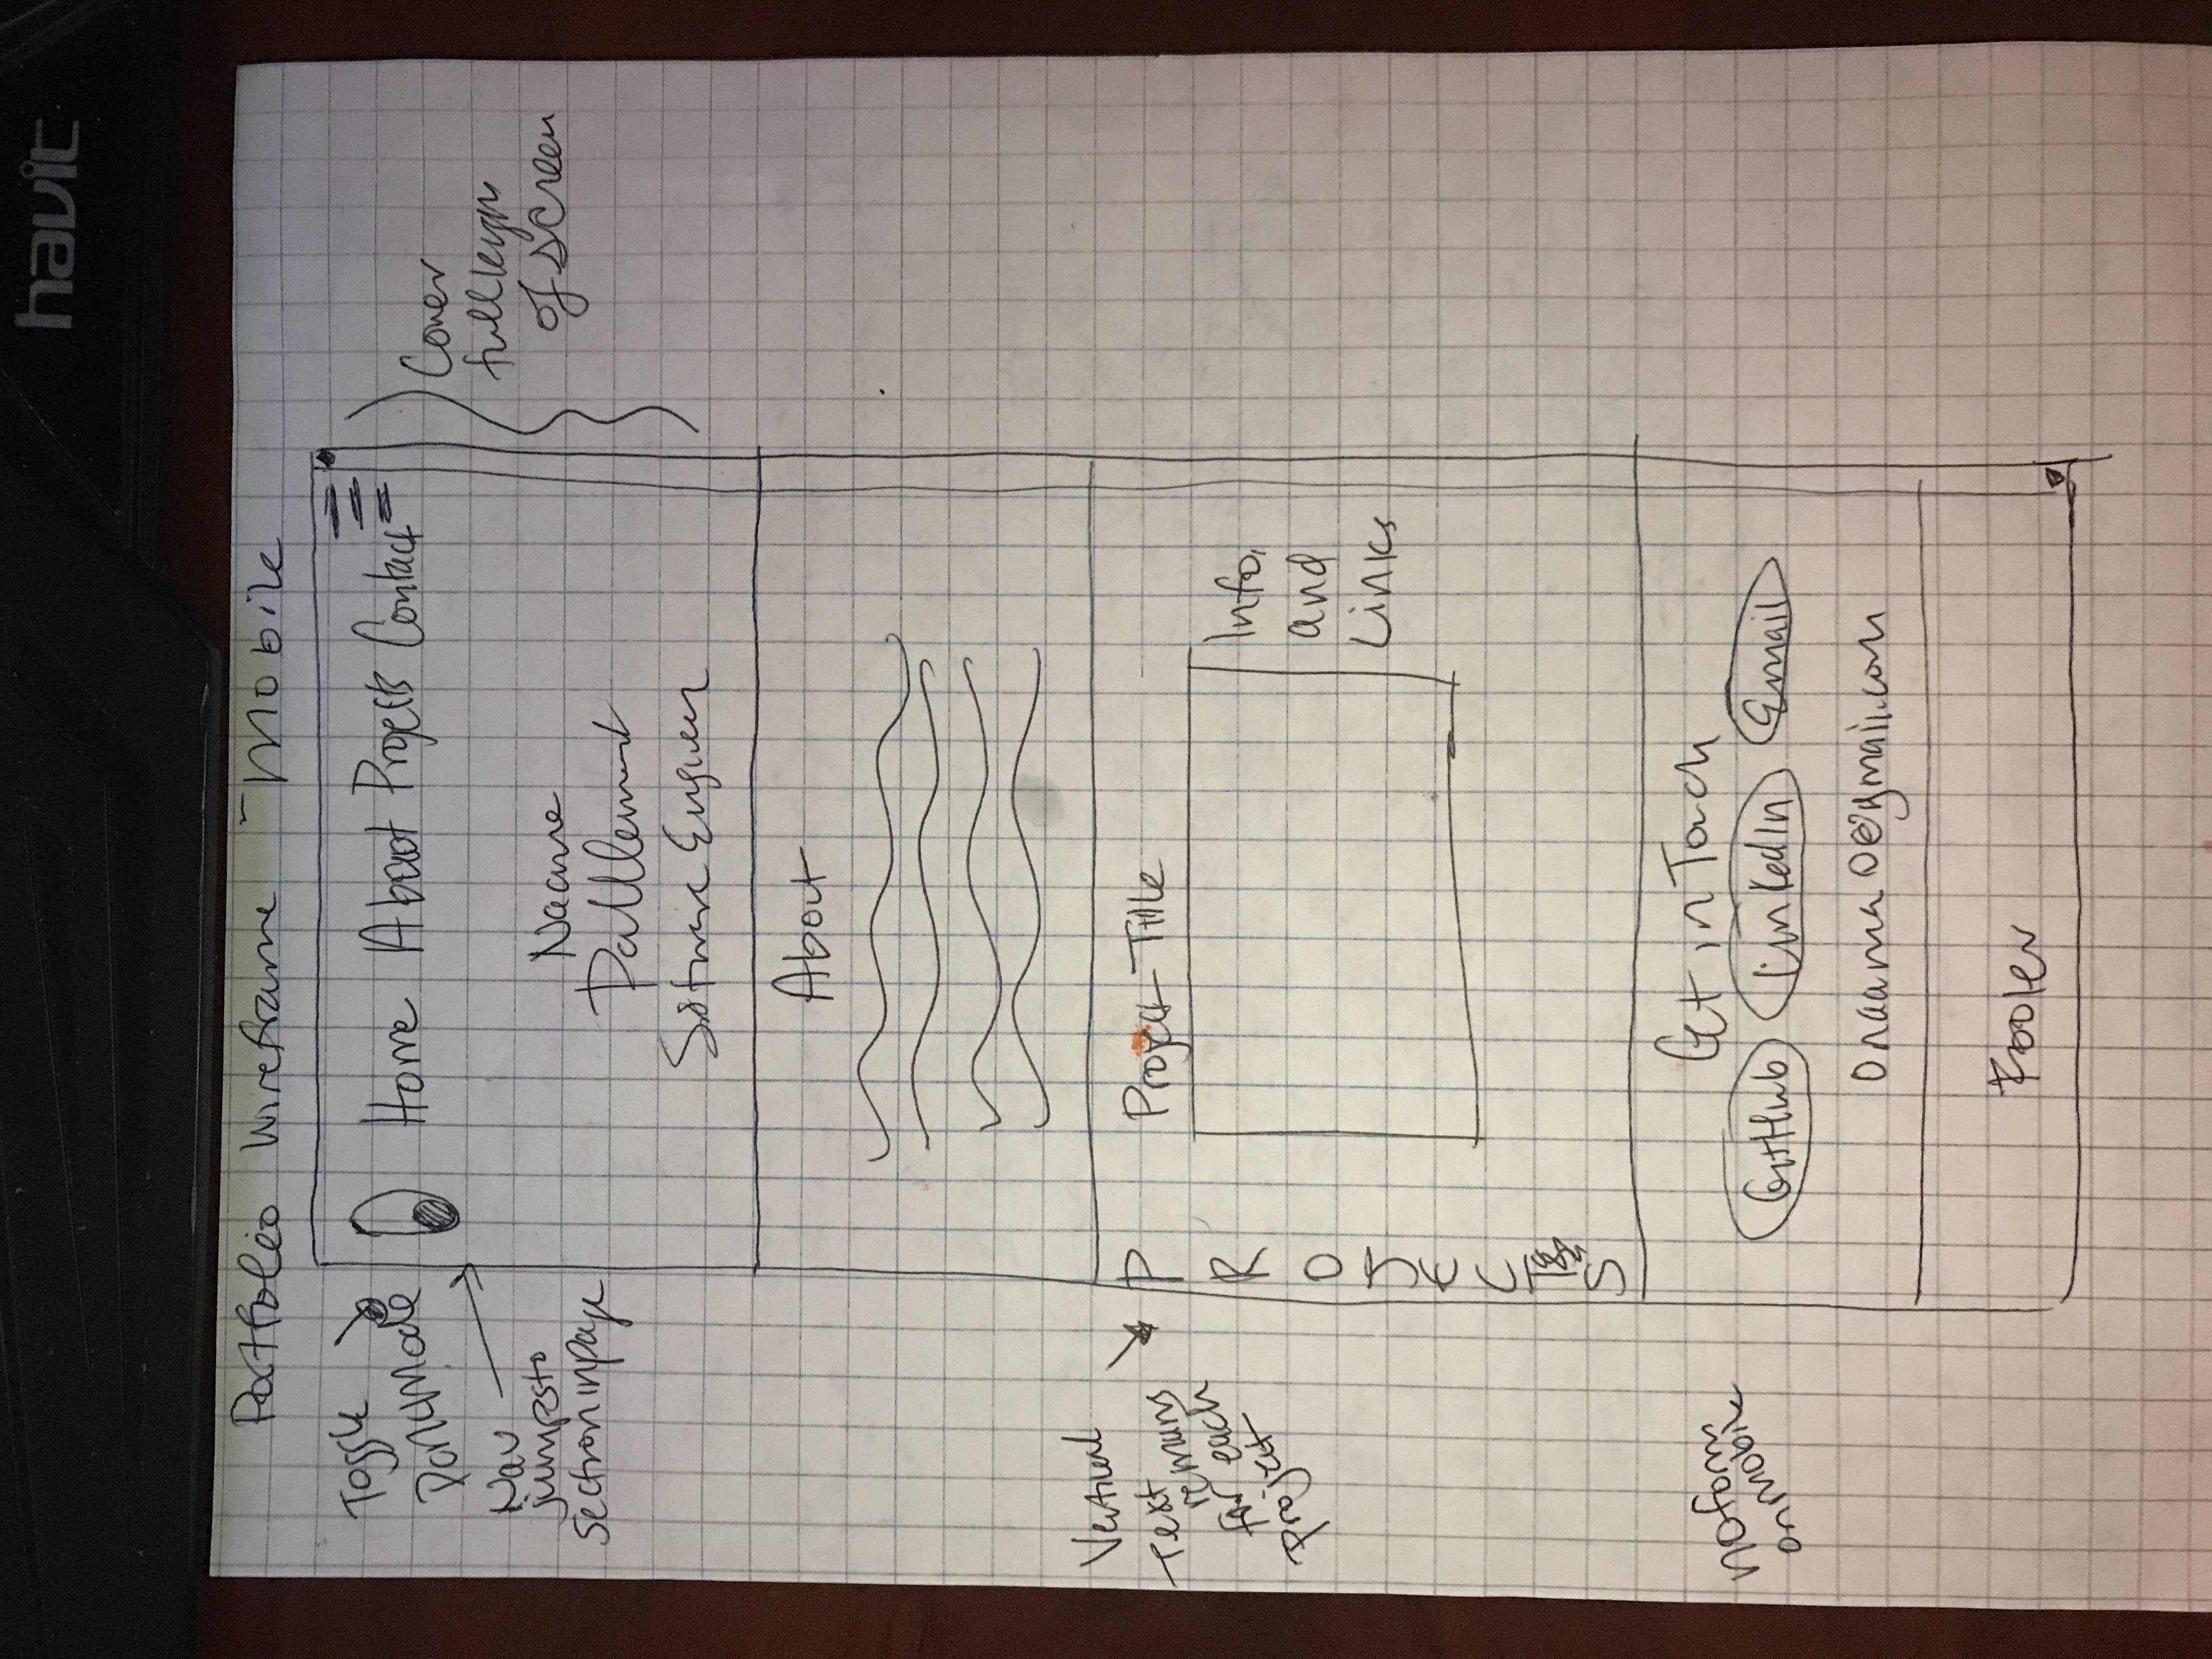 havit
Portfolio Wireframe - Mobile
Toggle
DarkMode
Nav
jumps to
section in page
Home About Projects Contact
Cover
full length
of screen
Naama
Software Engineer
About
Vertical
Text
remains
for each
Project
P
R
O
J
E
C
T
S
Project Title
Info,
and
Links
no form
on mobile
Get in Touch
GitHub LinkedIn Email
onaama0@gmail.com
Footer